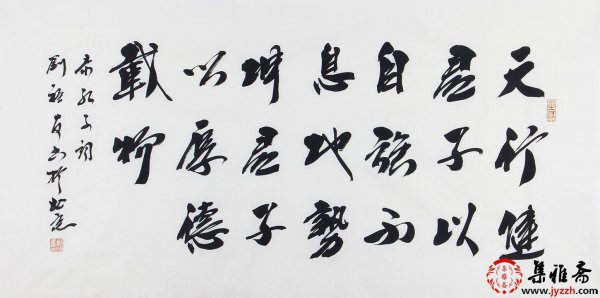 天行健
君子以
自强不
息地勢
坤君子
以厚德
載物
录孔子词
集雅斋
www.jyzzh.com